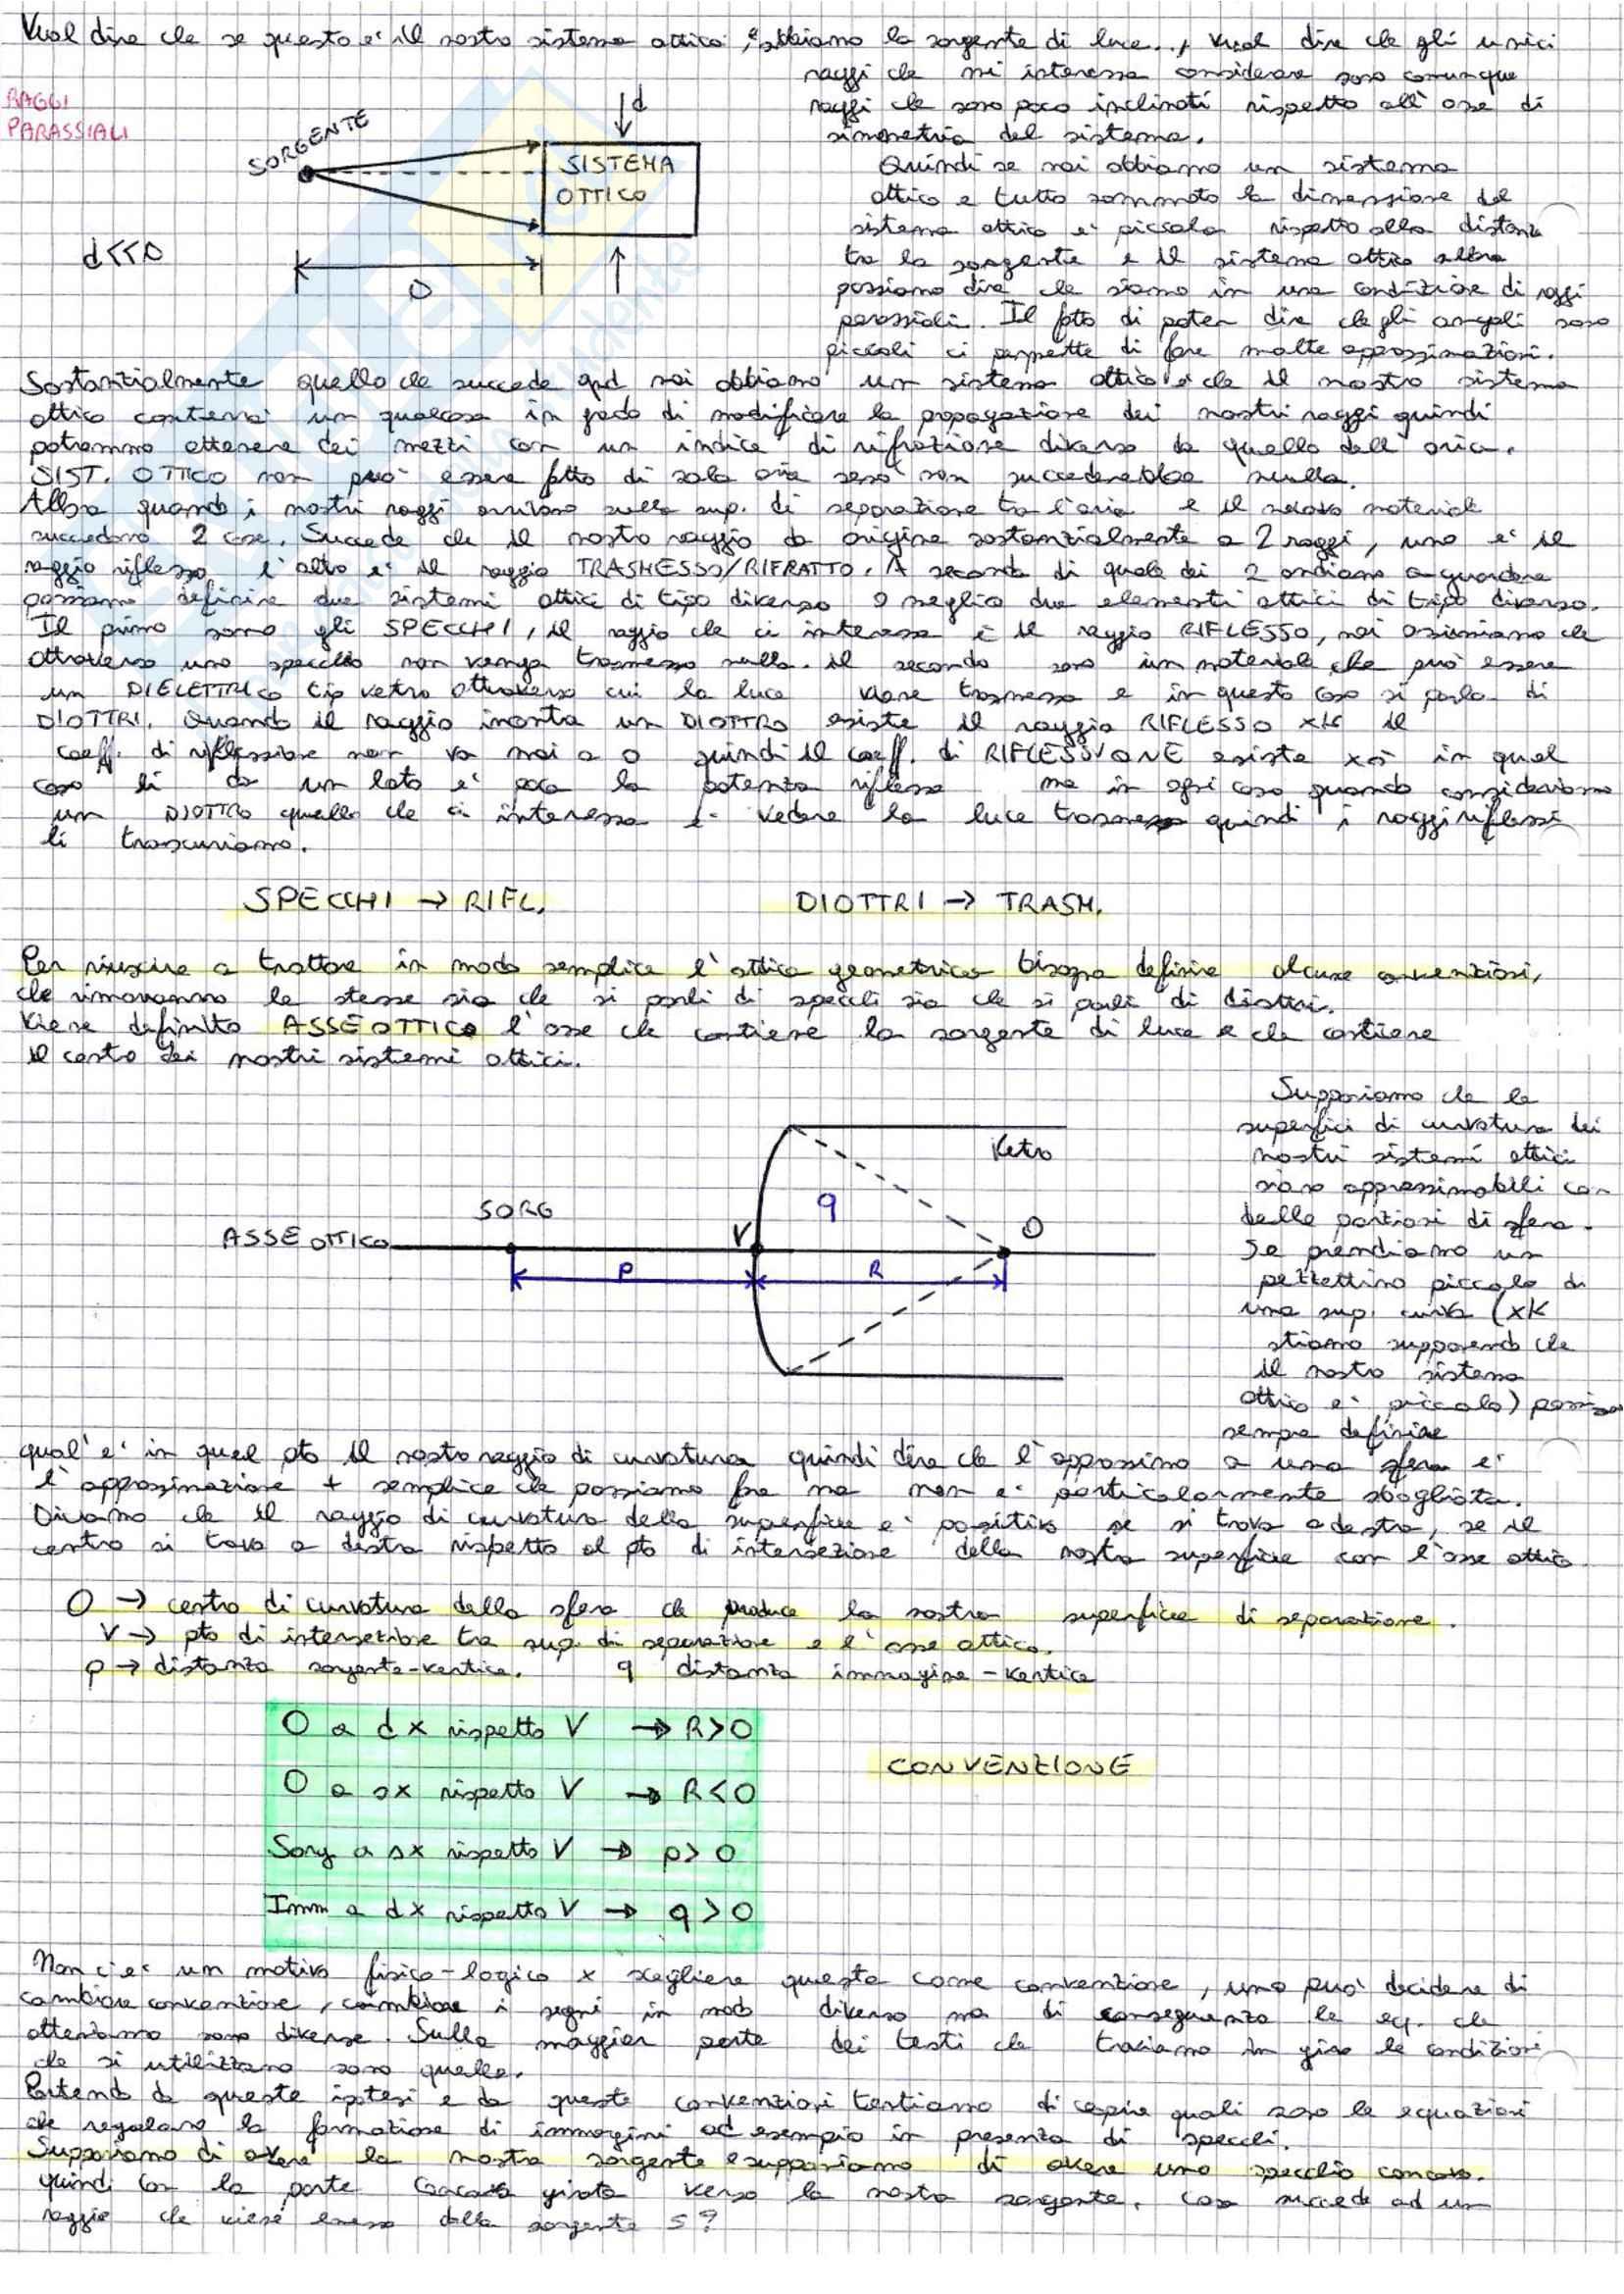 Vuol dire che se questo e' il nostro sistema ottico, e abbiamo la sorgente di luce.., vuol dire che gli unici
raggi che mi interessa considerare sono comunque
raggi che sono poco inclinati rispetto all'asse di
simmetria del sistema.
RAGGI
PARASSIALI
SORGENTE
d
SISTEMA
OTTICO
d<<D
D
Quindi se noi abbiamo un sistema
ottico e tutto sommato la dimensione del
sistema ottico e' piccola rispetto alla distanza
tra la sorgente e il sistema ottico allora
possiamo dire che siamo in una condizione di raggi
parassiali. Il fatto di poter dire che gli angoli sono
piccoli ci permette di fare molte approssimazioni.
Sostanzialmente quello che succede qnd noi abbiamo un sistema ottico e' che il nostro sistema
ottico conterrà un qualcosa in grado di modificare la propagazione dei nostri raggi quindi
potremmo ottenere dei mezzi con un indice di rifrazione diverso da quello dell'aria.
SIST. OTTICO non può essere fatto di sola aria senò non succederebbe nulla.
Allora quando i nostri raggi arrivano sulla sup. di separazione tra l'aria e il materiale
succedono 2 cose. Succede che il nostro raggio da origine sostanzialmente a 2 raggi, uno e' il
raggio riflesso, l'altro e' il raggio TRASMESSO/RIFRATTO. A seconda di quale dei 2 andiamo a guardare
possiamo definire due sistemi ottici di tipo diverso o meglio due elementi ottici di tipo diverso.
Il primo sono gli SPECCHI, il raggio che ci interessa è il raggio RIFLESSO, noi assumiamo che
attraverso uno specchio non venga trasmesso nulla. Il secondo sono un materiale che può essere
un DIELETTRICO tip vetro attraverso cui la luce viene trasmessa e in questo caso si parla di
DIOTTRI. Quando il raggio incontra un DIOTTRO esiste il raggio RIFLESSO xkè il
coeff. di riflessione non va mai a 0 quindi il coeff. di RIFLESSIONE esiste xò in quel
caso lì da un lato e' poca la potenza riflessa ma in ogni caso quando consideriamo
un DIOTTRO quello che ci interessa e' vedere la luce trasmessa quindi i raggi riflessi
li trascuriamo.
SPECCHI → RIFL. DIOTTRI → TRASM.
Per riuscire a trattare in modo semplice l'ottica geometrica bisogna definire alcune convenzioni,
che rimarranno le stesse sia che si parli di specchi sia che si parli di diottri.
Viene definito ASSE OTTICO l'asse che contiene la sorgente di luce e che contiene
il centro dei nostri sistemi ottici.
Vetro
q
SORG
ASSE OTTICO
V
O
P
R
Supponiamo che le
superfici di curvatura dei
nostri sistemi ottici
siano approssimabili con
delle porzioni di sfera.
Se prendiamo un
pezzettino piccolo di
una sup. curva (xk
stiamo supponendo che
il nostro sistema
ottico e' piccolo) possiamo
sempre definire
qual'e' in quel pto il nostro raggio di curvatura quindi dire che l'approssimo a una sfera e'
l'approssimazione + semplice che possiamo fare ma non e' particolarmente sbagliata.
Diciamo che il raggio di curvatura della superficie e' positivo se si trova a destra, se il
centro si trova a destra rispetto al pto di intersezione della nostra superficie con l'asse ottico.
O → centro di curvatura della sfera che produce la nostra superficie di separazione.
V → pto di intersezione tra sup. di separazione e l'asse ottico.
p → distanza sorgente-vertice. q distanza immagine-vertice
O a dx rispetto V → R>0
O a sx rispetto V → R<0
Sorg a sx rispetto V → p>0
Imm a dx rispetto V → q>0
CONVENZIONE
Non c'e' un motivo fisico-logico x scegliere questa come convenzione, uno può decidere di
cambiare convenzione, cambiare i segni in modo diverso ma di conseguenza le eq. che
otteniamo sono diverse. Sulla maggior parte dei testi che troviamo in giro le condizioni
che si utilizzano sono quelle.
Partendo da queste ipotesi e da queste convenzioni tentiamo di capire quali sono le equazioni
che regolano la formazione di immagini ad esempio in presenza di specchi.
Supponiamo di avere la nostra sorgente e supponiamo di avere uno specchio concavo.
quindi con la parte concava girata verso la nostra sorgente. Cosa succede ad un
raggio che viene emesso dalla sorgente S?